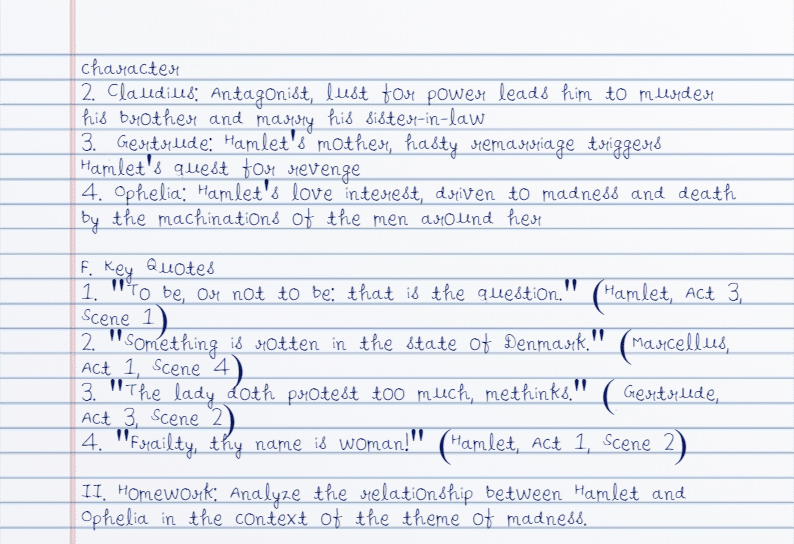 character
2. Claudius: Antagonist, lust for power leads him to murder
his brother and marry his sister-in-law
3. Gertrude: Hamlet's mother, hasty remarriage triggers
Hamlet's quest for revenge
4. Ophelia: Hamlet's love interest, driven to madness and death
by the machinations of the men around her
F. Key Quotes
1. "To be, or not to be: that is the question." (Hamlet, Act 3,
Scene 1)
2. "Something is rotten in the state of Denmark." (Marcellus,
Act 1, Scene 4)
3. "The lady doth protest too much, methinks." ( Gertrude,
Act 3, Scene 2)
4. "Frailty, thy name is woman!" (Hamlet, Act 1, Scene 2)
II. Homework: Analyze the relationship between Hamlet and
Ophelia in the context of the theme of madness.